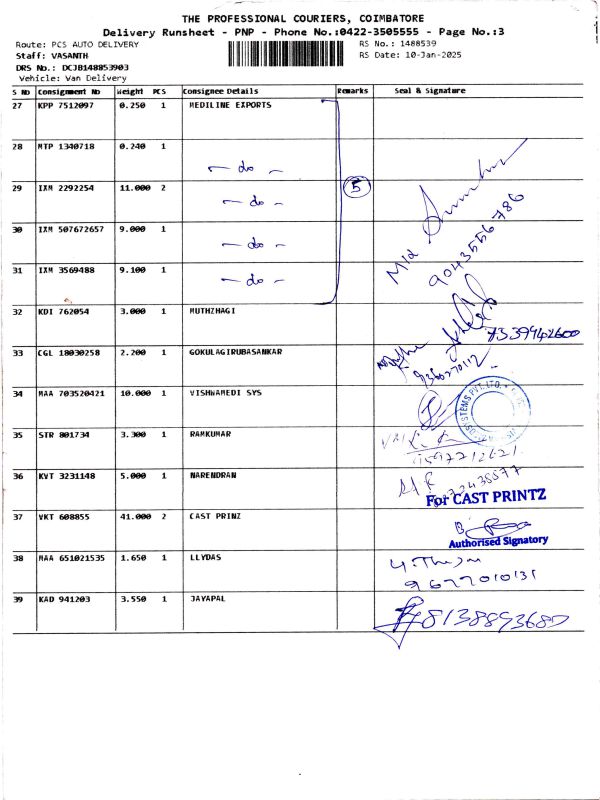 THE PROFESSIONAL COURIERS, COIMBATORE
Delivery Runsheet - PNP - Phone No.:0422-3505555 - Page No.:3
Route: PCS AUTO DELIVERY
RS No.: 1488539
Staff: VASANTH
RS Date: 10-Jan-2025
DRS No.: DCJB148853903
Vehicle: Van Delivery
S No Consignment No Weight PCS Consignee Details Remarks Seal & Signature
27 KPP 7512097 0.250 1 MEDILINE EXPORTS
28 MTP 1340718 0.240 1
- do -
29 IXM 2292254 11.000 2 5
- do -
30 IXM 507672657 9.000 1
- do -
9043556786
31 IXM 3569488 9.100 1
- do -
32 KDI 762054 3.000 1 MUTHZHAGI
7339942600
33 CGL 18030258 2.200 1 GOKULAGIRUBASANKAR
9360270112
34 MAA 703520421 10.000 1 VISHWAMEDI SYS
35 STR 801734 3.300 1 RAMKUMAR
9597212621
36 KVT 3231148 5.000 1 NARENDRAN
For CAST PRINTZ
37 VKT 608855 41.000 2 CAST PRINZ
Authorised Signatory
38 MAA 651021535 1.650 1 LLYDAS
9677010131
39 KAD 941203 3.550 1 JAYAPAL
8138893680